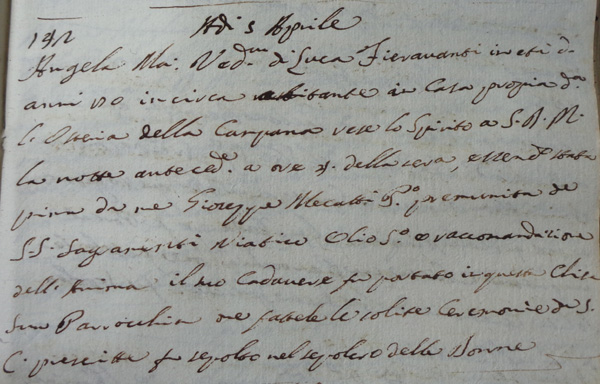 Adi 5 Aprile
Angela Ma. Ved.va di Luca Fieravanti in età d.
anni 80 in circa abitante in Casa propia d.a
l'Osteria della Campana rese lo Spirito a S. D. M.
la notte anteced.e a ore 3. della sera, essend. stata
prima da me Giuseppe Mecatti P.o premunita de
S.S. Sagramenti Viatico Olio S.o e raccomandazione
dell'Anima il suo Cadavere fu portato in questa Chiesa
Sua Parrocchia ove fattele le solite Ceremonie da S.
C. prescitte fu sepolto nel sepolcro delle Donne